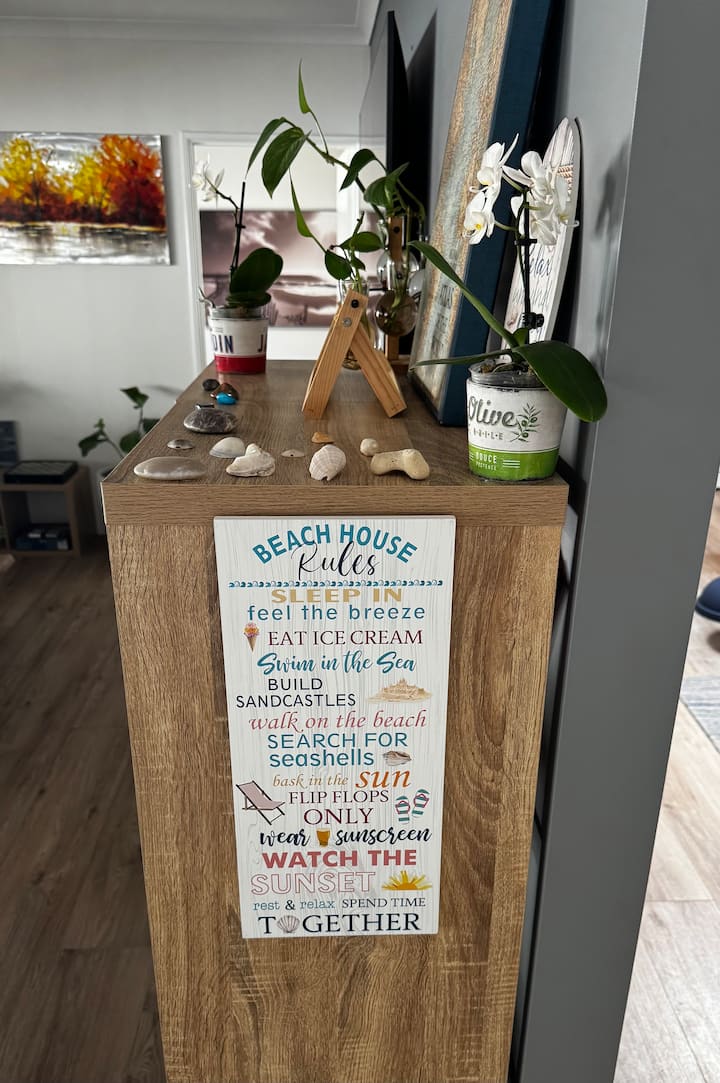 DIN J
Olive
HUILE
DOUCE
PROVENCE
BEACH HOUSE
Rules
SLEEP IN
feel the breeze
EAT ICE CREAM
Swim in the Sea
BUILD
SANDCASTLES
walk on the beach
SEARCH FOR
seashells
bask in the sun
FLIP FLOPS
ONLY
wear sunscreen
WATCH THE
SUNSET
rest & relax SPEND TIME
TOGETHER